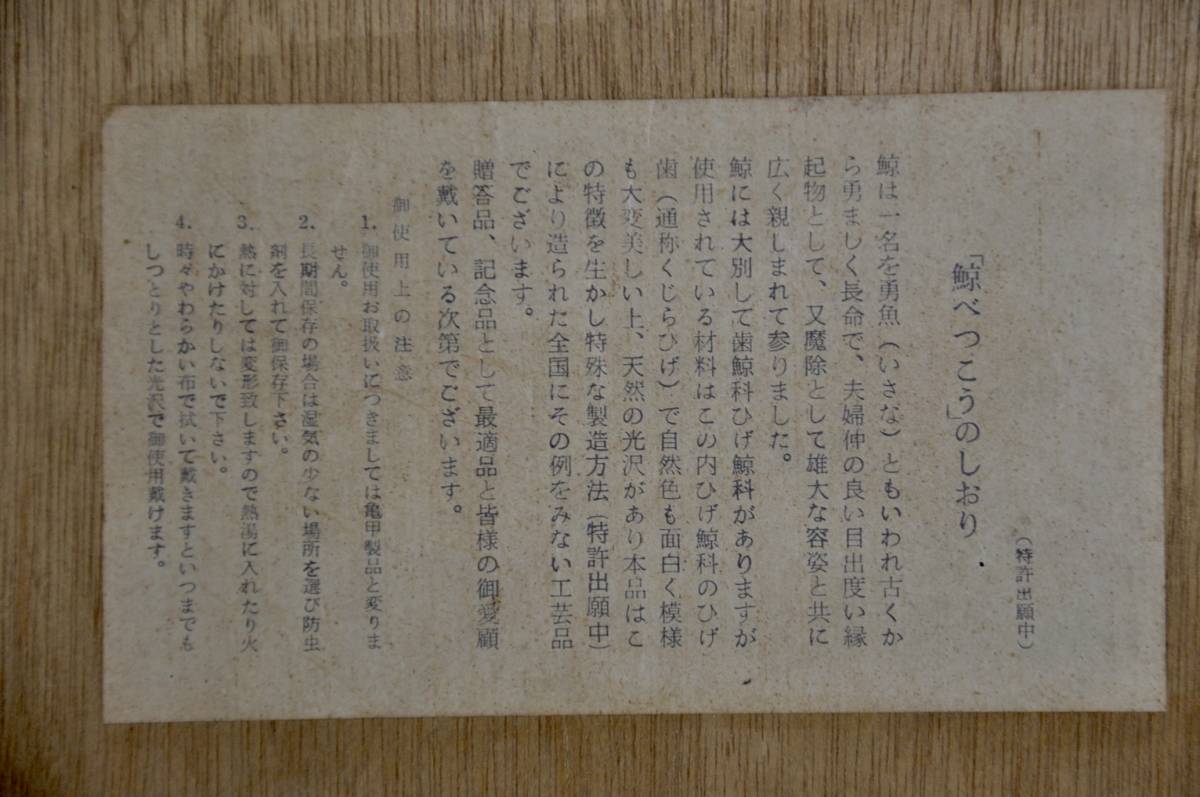 （特許出願中）
「鯨べつこう」のしおり
鯨は一名を勇魚（いさな）ともいわれ古くか
ら勇ましく長命で、夫婦仲の良い目出度い縁
起物として、又魔除として雄大な容姿と共に
広く親しまれて参りました。
鯨には大別して歯鯨科ひげ鯨科がありますが
使用されている材料はこの内ひげ鯨科のひげ
歯（通称くじらひげ）で自然色も面白く模様
も大変美しい上、天然の光沢があり本品はこ
の特徴を生かし特殊な製造方法（特許出願中）
により造られた全国にその例をみない工芸品
でございます。
贈答品、記念品として最適品と皆様の御愛顧
を戴いている次第でございます。
御使用上の注意
1. 御使用お取扱いにつきましては亀甲製品と変りま
せん。
2. 長期間保存の場合は湿気の少ない場所を選び防虫
剤を入れて御保存下さい。
3. 熱に対しては変形致しますので熱湯に入れたり火
にかけたりしないで下さい。
4. 時々やわらかい布で拭いて戴きますといつまでも
しつとりとした光沢で御使用戴けます。